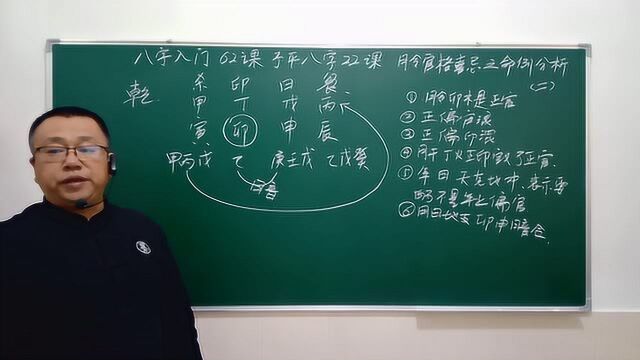 八字入门 62课 子平八字22课 月令官格喜忌之命例分析
(二)
乾
杀 卩 日 食
甲 丁 戊 丙
寅 卯 申 辰
甲丙戊 乙 庚壬戊 乙戊癸
暗合
①月令卯木是正官
②正偏官混
③正偏印混
④月干丁火正印 了正官
⑤年日天克地冲,表示
不是年上偏官
⑥月日地支卯申暗合